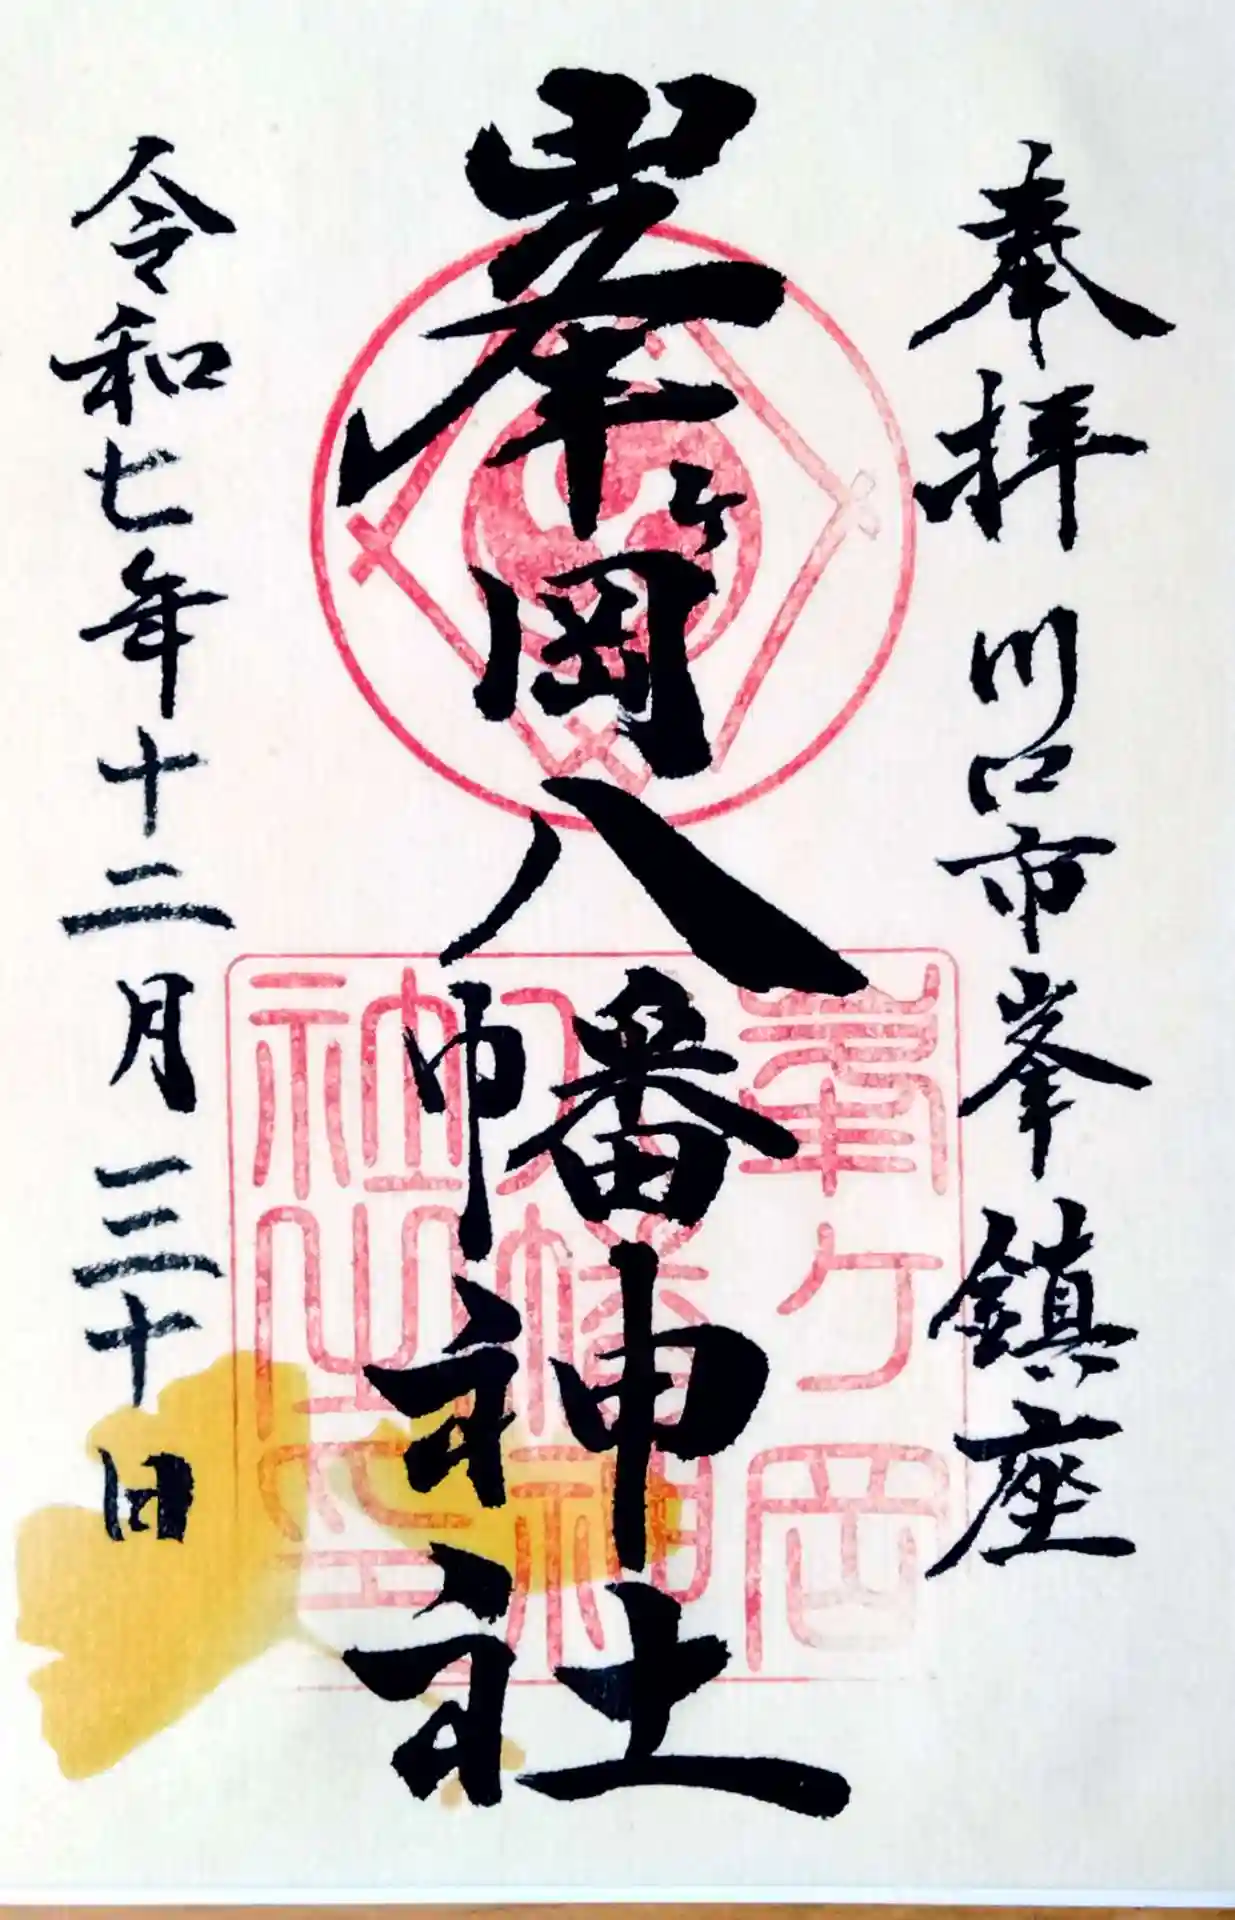 奉拝 川口市峯鎮座
峯ヶ岡八幡神社
令和七年十二月三十日
峯ヶ岡
八幡神
社之印